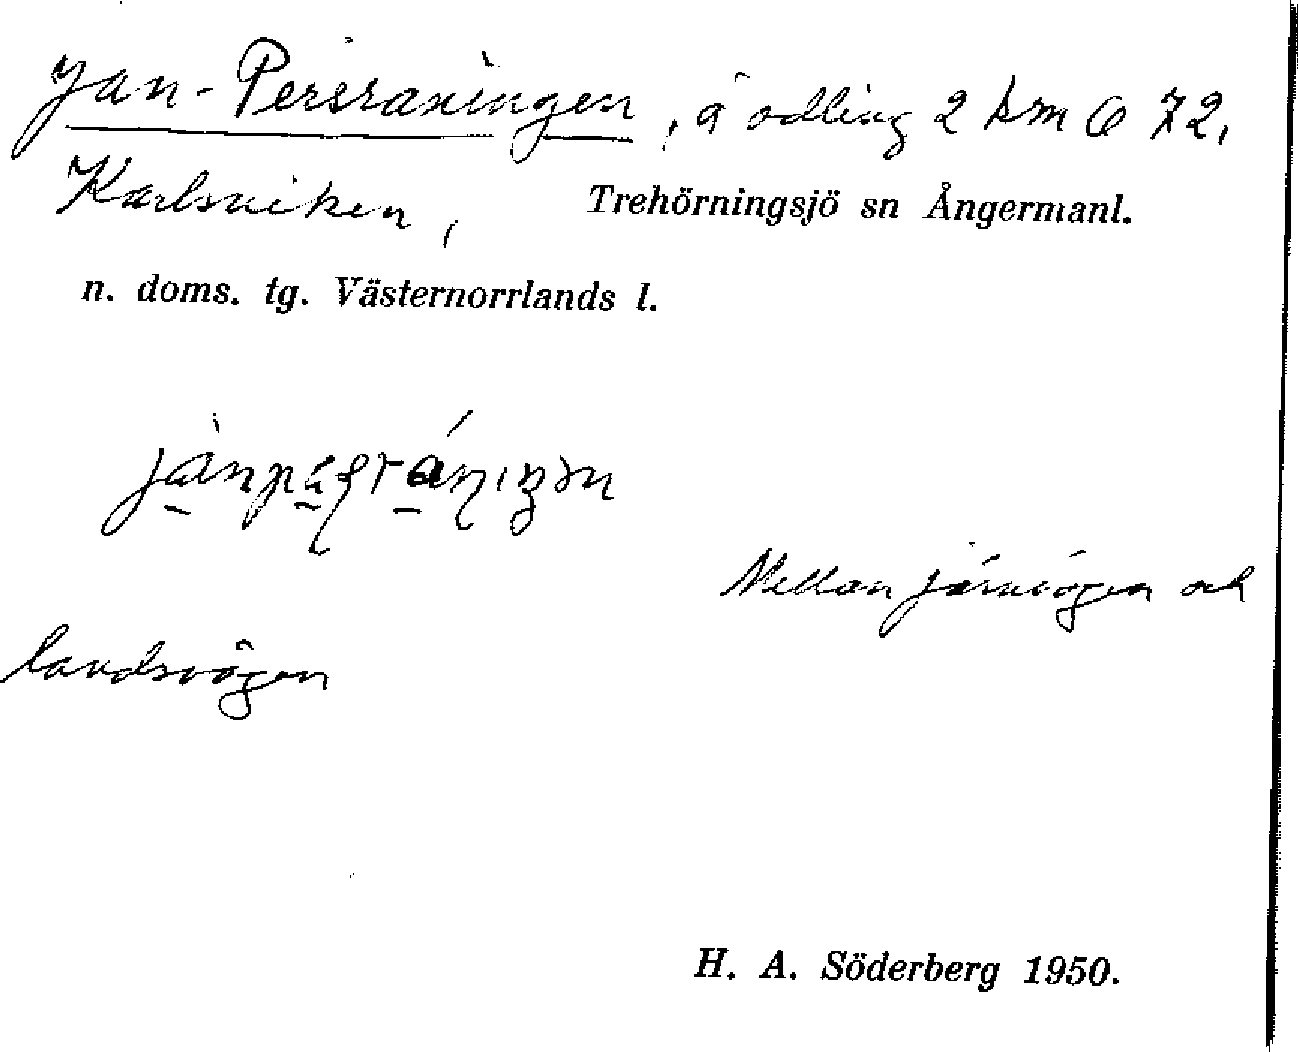 Jan-Persraningen, å odling 2 km Ö 72,
Karlsviken, Trehörningsjö sn Ångermanl.
n. doms. tg. Västernorrlands l.
Mellan järnvägen och
landsvägen
H. A. Söderberg 1950.